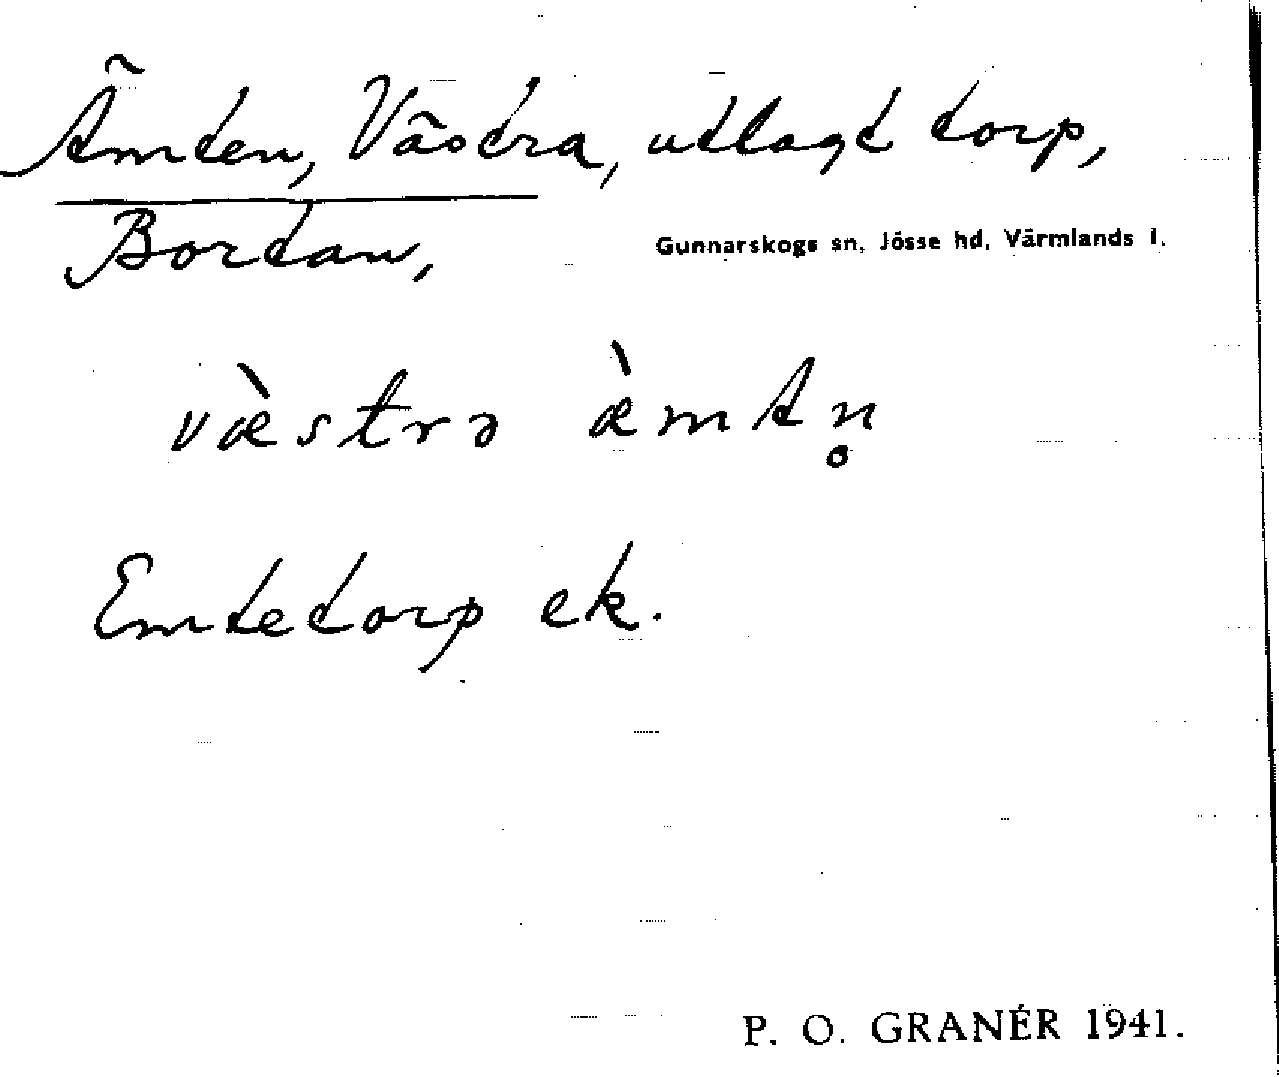 Ämten, Västra, utlagt torp,
Bortan,
Gunnarskogs sn, Jösse hd, Värmlands l.
væ̀strə æ̀mtn̥
Emtetorp ek.
P. O. GRANÉR 1941.